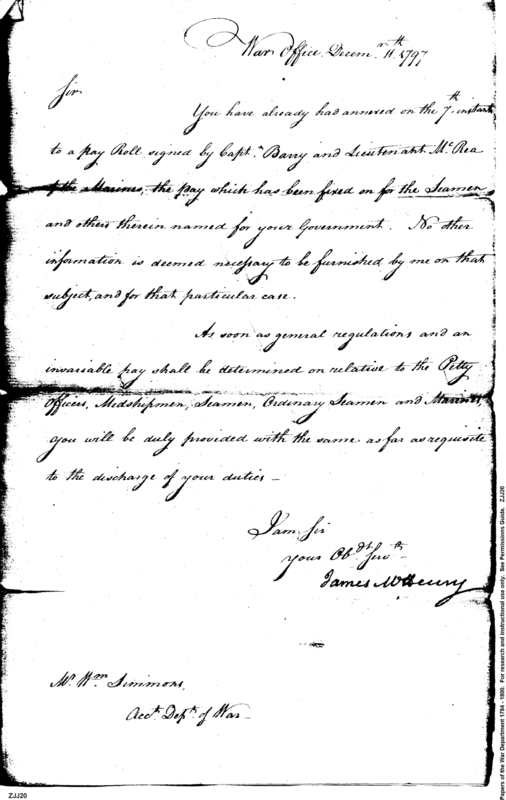 War Office Decem.r 11.th 1797
Sir
You have already had annexed on the 7.th instant
to a pay Roll signed by Capt.n Barry and Lieutenant Mc.Rea
of the Marines, the pay which has been fixed on for the Seamen
and others therein named for your Government. No other
information is deemed necessary to be furnished by me on that
subject, and for that particular case.
As soon as general regulations and an
invariable pay shall be determined on relative to the Petty
Officers, Midshipmen, Seamen, Ordinary Seamen and Marines,
you will be duly provided with the same as far as requisite
to the discharge of your duties —
I am Sir
your Ob.dt Serv.th
James McHenry
Mr. Wm. Simmons,
Acc.t Dep.t of War —
ZJJ20
Papers of the War Department 1784 - 1800. For research and instructional use only. See Permissions Guide. ZJJ20